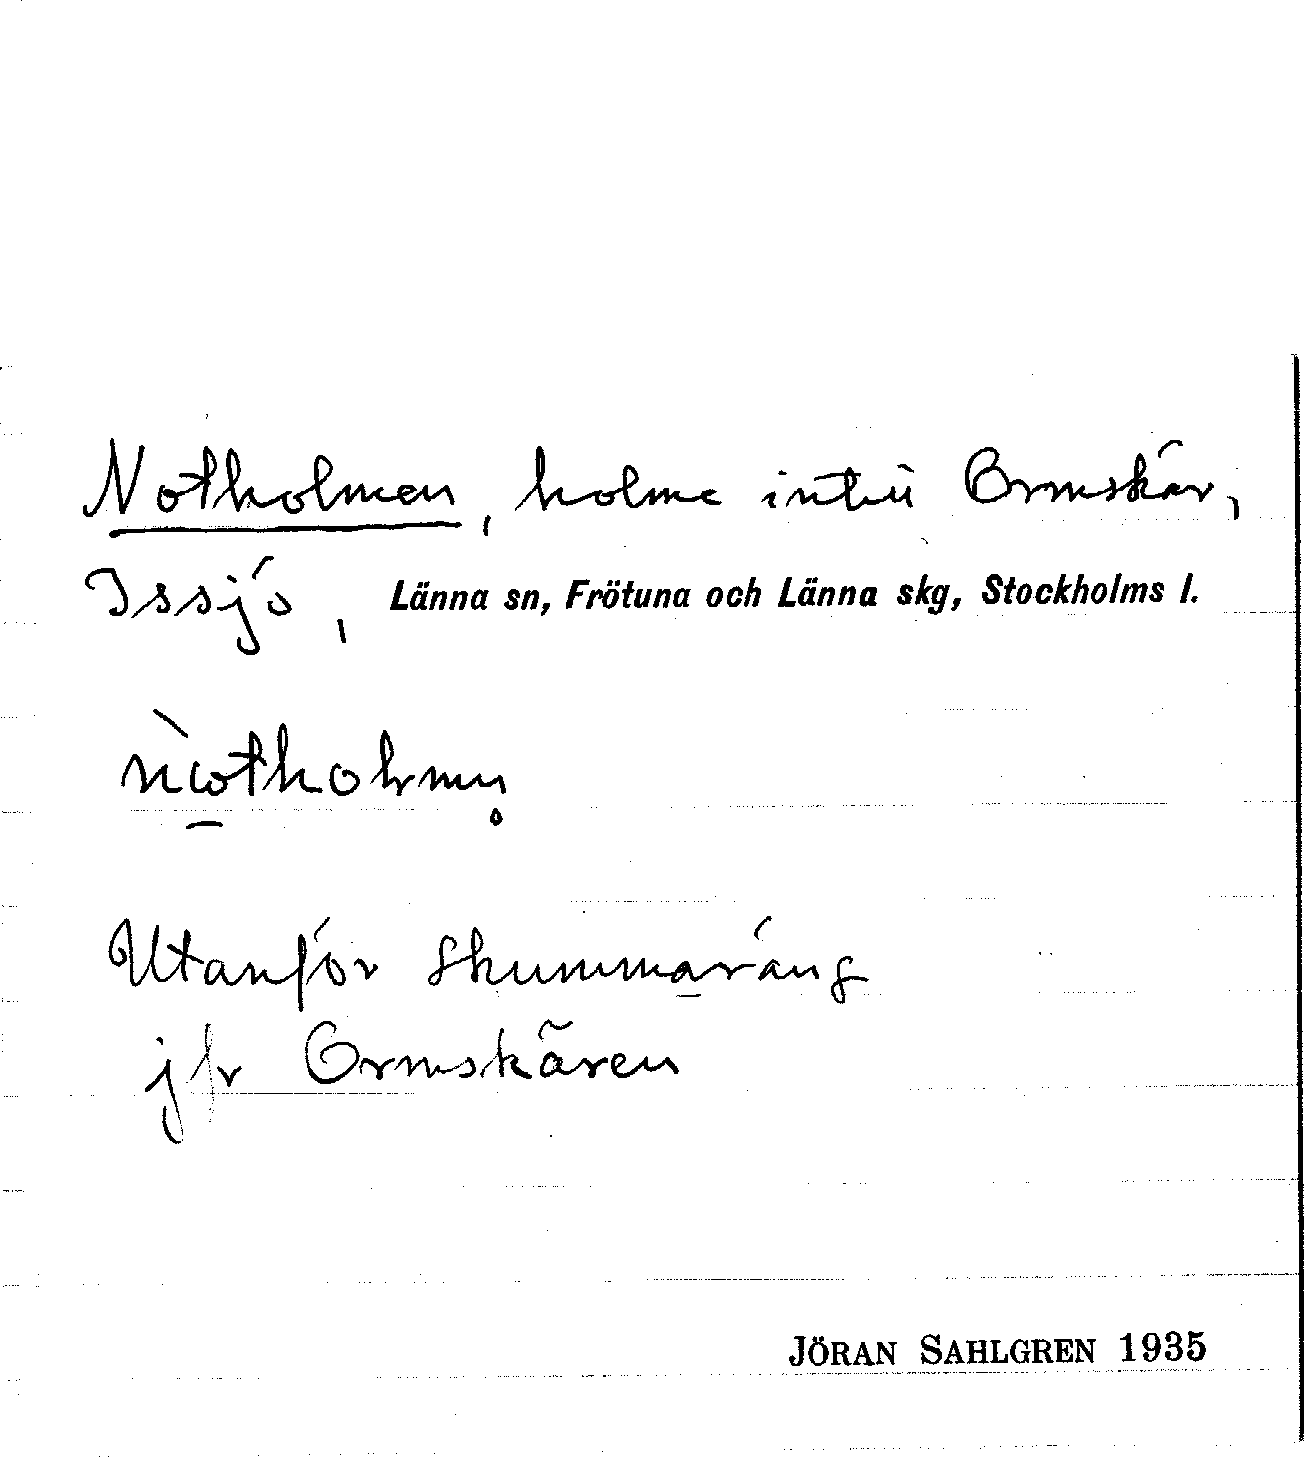 Notholmen, holme intill Ormskär,
Issjö, Länna sn, Frötuna och Länna skg, Stockholms l.
nòt̲holmn̥
Utanför Skummaräng
jfr Ormskären
JÖRAN SAHLGREN 1935